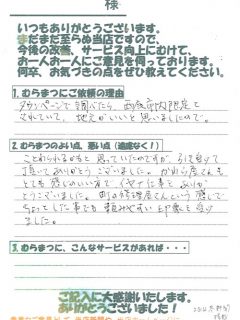 様
いつもありがとうございます。
まだまだ至らぬ当店ですので、
今後の改善、サービス向上にむけて、
お一人お一人にご意見を伺っております。
何卒、お気づきの点をぜひ教えてください。
1.むらまつにご依頼の理由
タウンページで調べたら、西
されていて、地元がいいと思いましたので。
2.むらまつのよい点、悪い点（遠慮なく！）
ことわられるかもと思っていたのですが、引き受けて
頂いてありがとうございました。
とても感じのいい方で
とうございました。町の修理屋さんという感じで
ちょっとした事でも頼みやすい印象を受け
ました。
3.むらまつに、こんなサービスがあれば・・・
ご記入に大感謝いたします。
ありがとうございました！